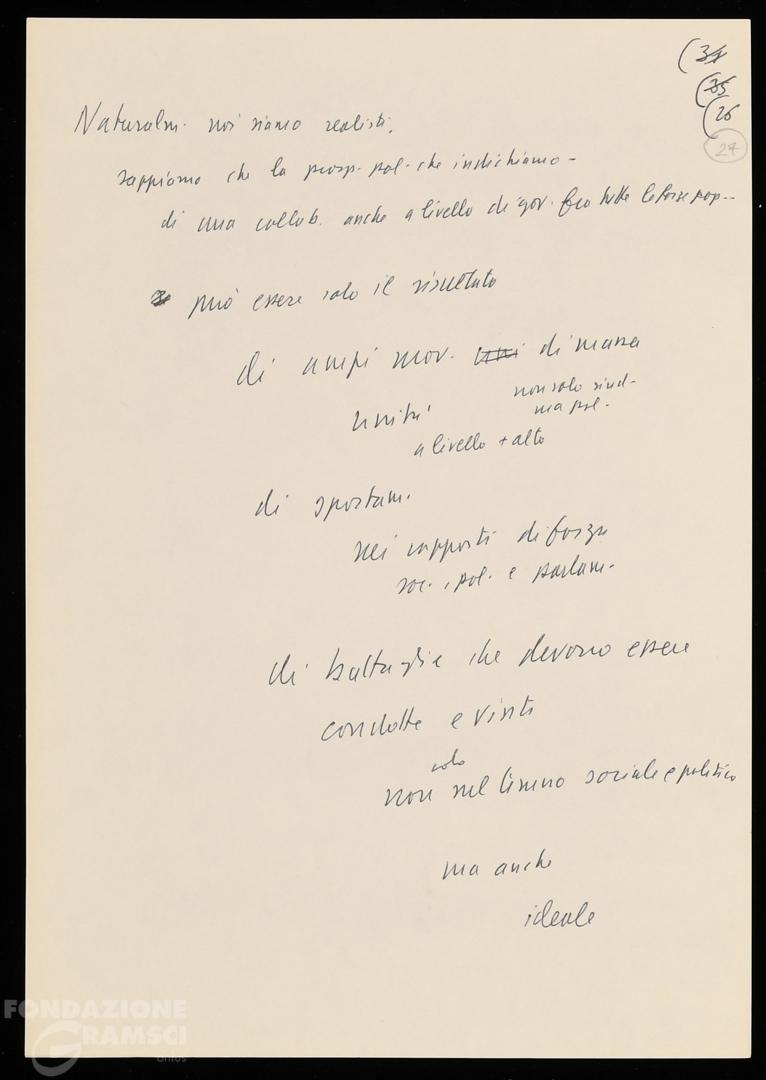 (34
(35
(26
27
Naturalm. noi siamo realisti,
sappiamo che la prosp. pol. che indichiamo -
di una collab. anche a livello di gov. fra tutte le forze pop--
può essere solo il risultato
di ampi mov. uni di massa
non solo sind-
unitri
ma pol-
a livello + alto
di spostam.
nei rapporti di forza
soc., pol. e parlam.
di battaglie che devono essere
condotte e vinte
solo
non nel terreno sociale e politico
ma anche
ideale
FONDAZIONE
GRAMSCI
onlus